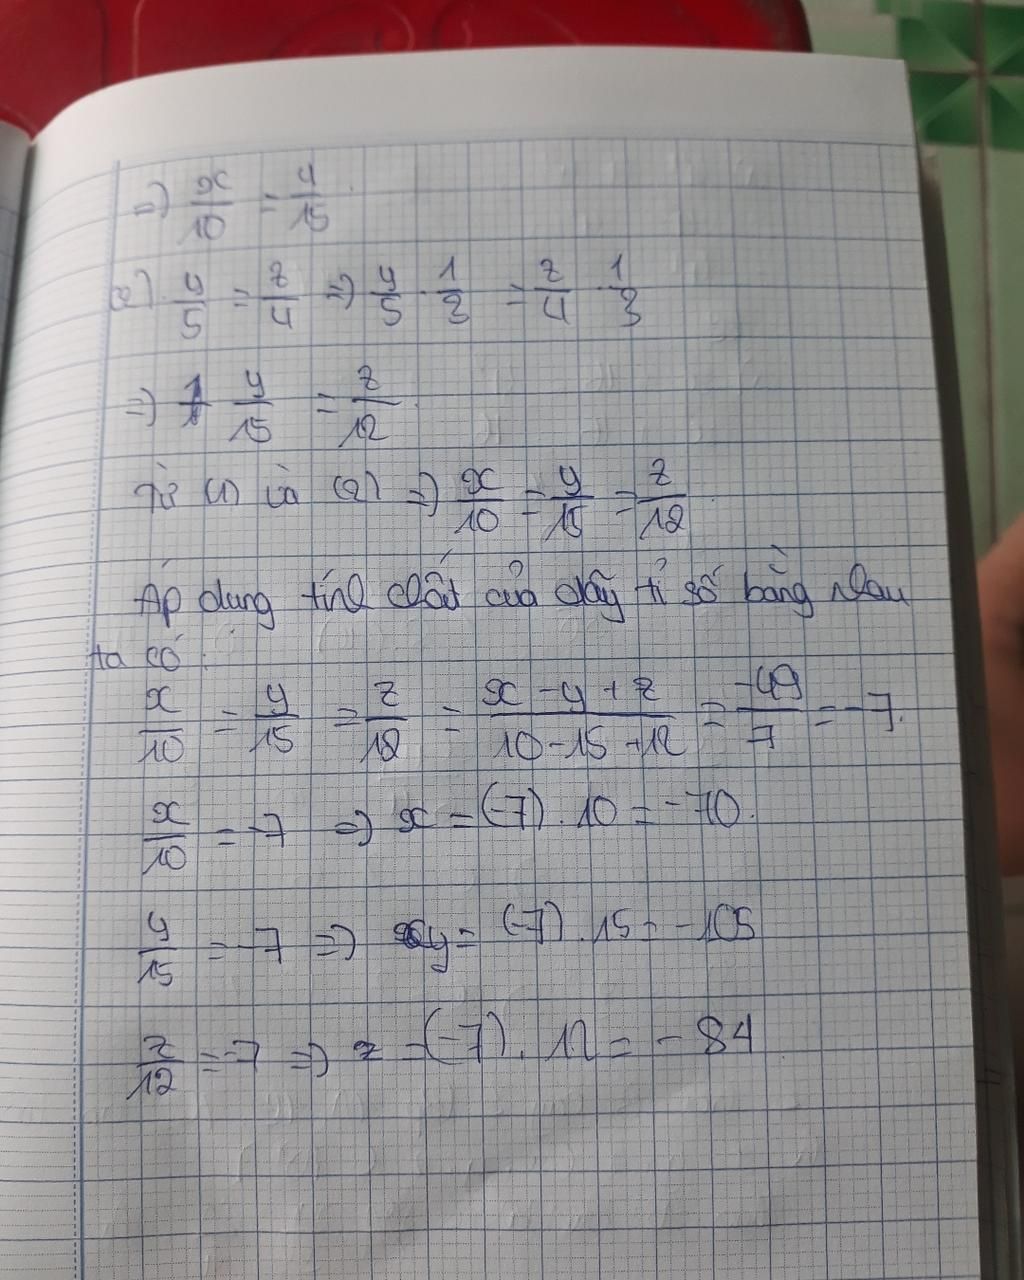 => x/10 = y/15
(2). y/5 = z/4 => y/5 . 1/3 = z/4 . 1/3
=> y/15 = z/12
Từ (1) và (2) => x/10 = y/15 = z/12.
Áp dụng tính chất của dãy tỉ số bằng nhau
ta có:
x/10 = y/15 = z/12 = x-y+z/10-15+12 = -49/7 = -7.
x/10 = -7 => x = (-7).10 = -70.
y/15 = -7 => y = (-7).15 = -105
z/12 = -7 => z = (-7).12 = -84